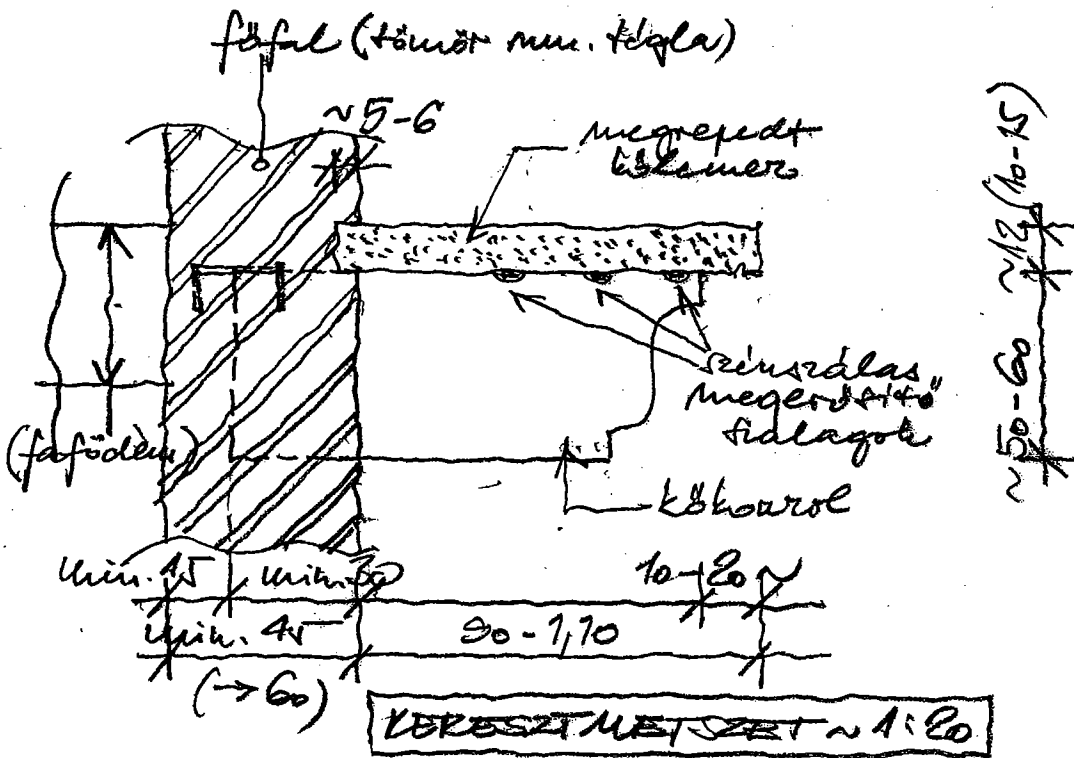 főfal (tömör mm. tégla)
~5-6
megrepedt
kőlemez
~12 (10-15)
~50-60
szénszálas
megerősítő
szalagok
(fafödém)
kőkonzol
min. 15
min. 30
10-20~
min. 45
90-1,10
(→60)
KERESZTMETSZET ~1:20